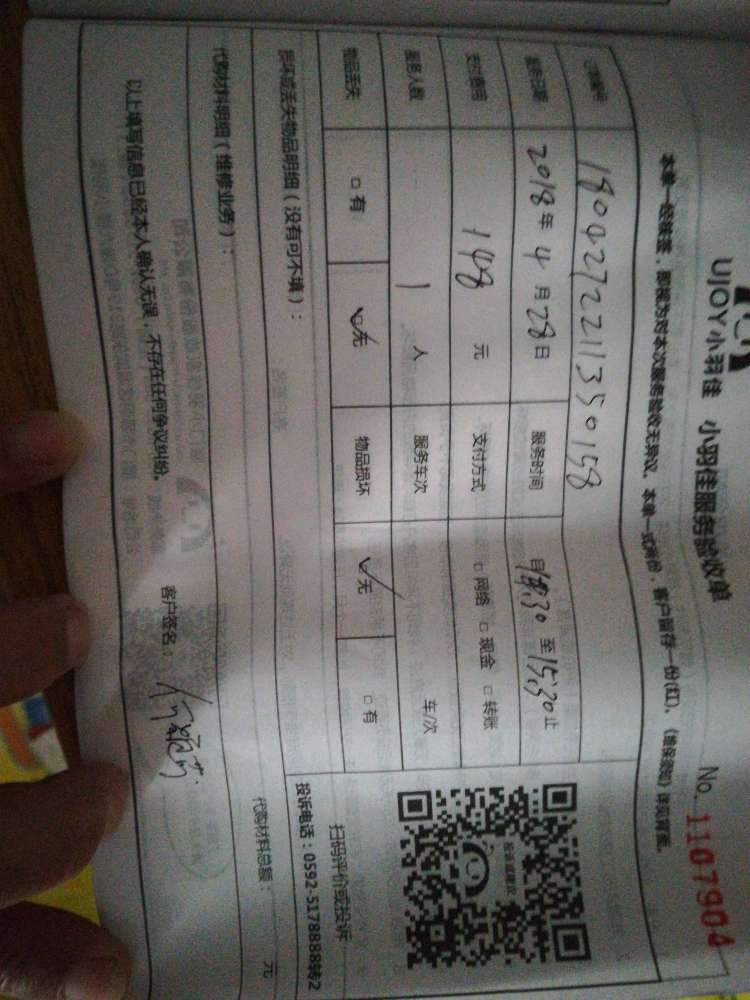 UJOY小羽佳 小羽佳服务验收单
No. 1107904
本单一经签签，即视为对本次服务验收无异议。本单一式两份，客户留存一份(红)。
订单编码 180427221135 0158
服务日期 2018年 4月 28日 服务时间 自 14:30 至 15:30 止
支付费用 148 元 支付方式 □网络 □现金 □转账
服务人数 1 人 服务车次 车/次
物品丢失 □有 ☑无 物品损坏 ☑无 □有
扫码评价或投诉
损坏或丢失物品明细（没有可不填）：
投诉电话：0592-5178888转2
代购材料明细（维修业务）：
代购材料总额： 元
以上填写信息已经本人确认无误，不存在任何争议纠纷。
客户签名：